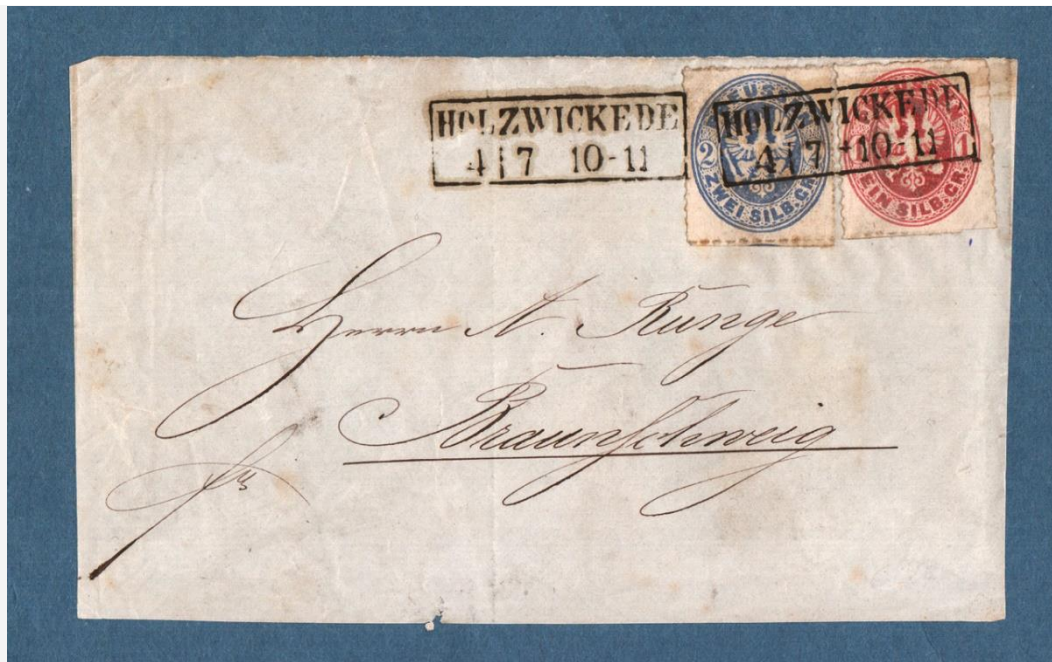 HOLZWICKEDE
4 7 10-11
HOLZWICKEDE
4 7 10-11
2 ZWEI SILB.GR.
1 EIN SILB.GR.
Herrn A. Runge
Braunschweig
fr